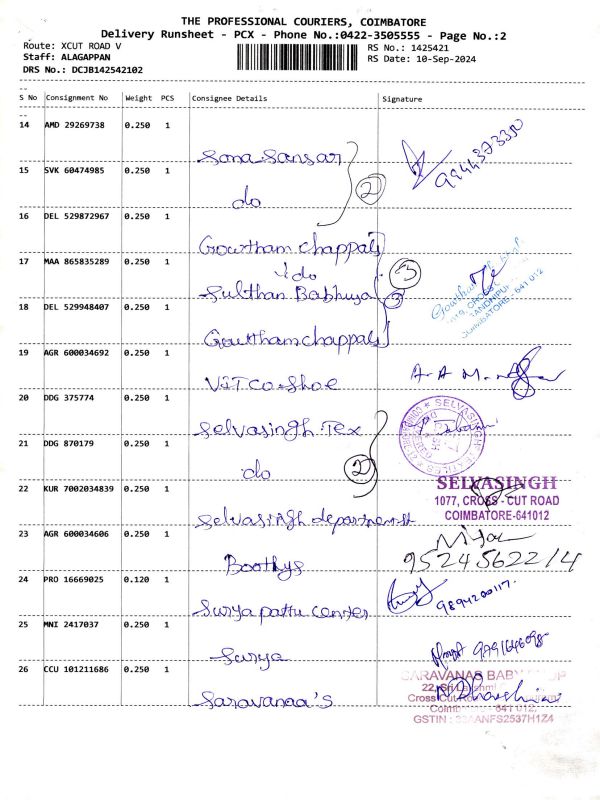 THE PROFESSIONAL COURIERS, COIMBATORE
Delivery Runsheet - PCX - Phone No.:0422-3505555 - Page No.:2
Route: XCUT ROAD V RS No.: 1425421
Staff: ALAGAPPAN RS Date: 10-Sep-2024
DRS No.: DCJB142542102
S No Consignment No Weight PCS Consignee Details Signature
14 AMD 29269738 0.250 1
Sona Sansar 9944373330
15 SVK 60474985 0.250 1
do 2
16 DEL 529872967 0.250 1
Gowtham chappals
17 MAA 865835289 0.250 1
do 3
Sulthan Babhuya 3
18 DEL 529948407 0.250 1
COIMBATORE - 641 012
Gowtham chappals
19 AGR 600034692 0.250 1
VITCO Shoe
20 DDG 375774 0.250 1
Selvasingh Tex
21 DDG 870179 0.250 1
do 2
22 KUR 7002034839 0.250 1
SELVASINGH
1077, CROSS - CUT ROAD
COIMBATORE-641012
Selvasingh department
23 AGR 600034606 0.250 1
Boothys 9524562214
24 PRO 16669025 0.120 1
Surya pattu center 9894200117.
25 MNI 2417037 0.250 1
Surya 9791646098
26 CCU 101211686 0.250 1
Saravanaa's
GSTIN : 33AANFS2537H1Z4